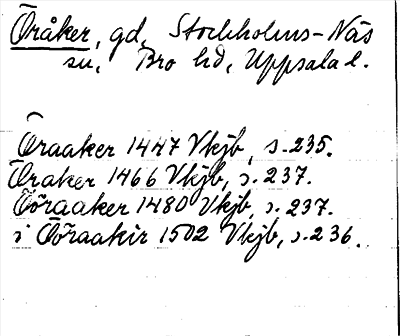 Öråker, gd, Stockholms-Näs
sn, Bro hd, Uppsala l.
Öraaker 1447 Vkjb, s. 235.
Öraker 1466 Vkjb, s. 237.
Ööraaker 1480 Vkjb, s. 237.
i Ööraakir 1502 Vkjb, s. 236.